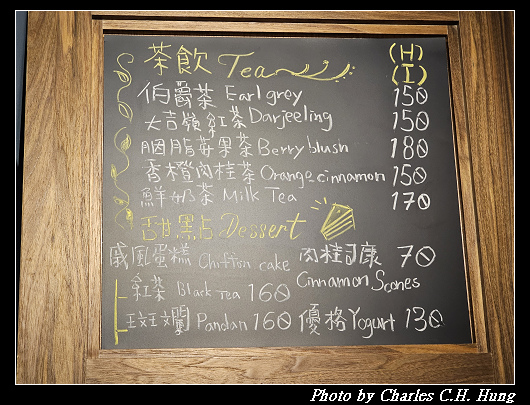 茶飲 Tea (H)
(I)
伯爵茶 Earl grey 150
大吉嶺紅茶 Darjeeling 150
胭脂莓果茶 Berry blush 180
香橙肉桂茶 Orange cinnamon 150
鮮奶茶 Milk Tea 170
甜點 Dessert
戚風蛋糕 Chiffon cake 肉桂司康 70
Cinnamon Scones
紅茶 Black tea 160
斑斕 Pandan 160 優格 Yogurt 130
Photo by Charles C.H. Hung